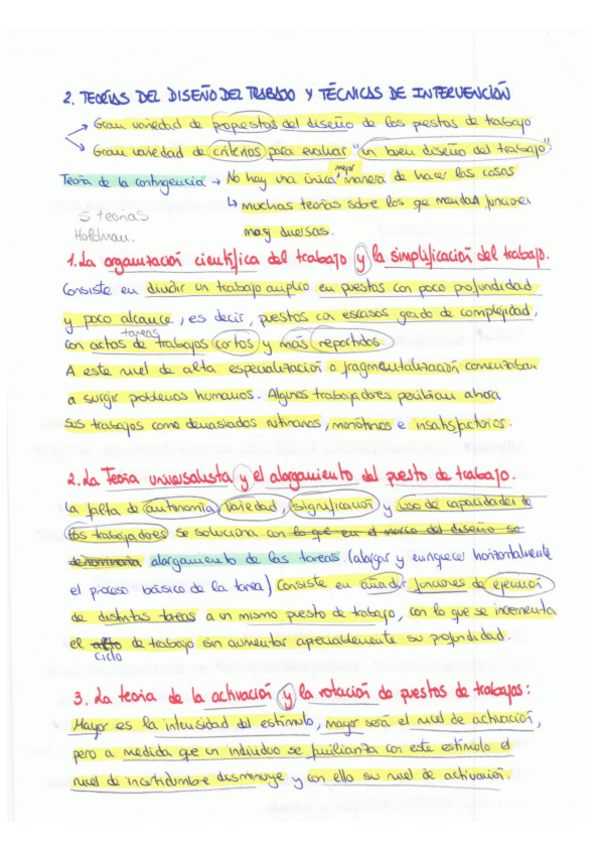 2. TEORÍAS DEL DISEÑO DEL TRABAJO Y TÉCNICAS DE INTERVENCIÓN
→ Gran variedad de propuestas del diseño de los puestos de trabajo
→ Gran variedad de criterios para evaluar "un buen diseño del trabajo"
mejor
Teoría de la contingencia → No hay una única manera de hacer las cosas
↳ muchas teorías sobre los que mandan funciones
5 teorías
Holdman.
muy diversas.
1. La organización científica del trabajo y la simplificación del trabajo.
Consiste en dividir un trabajo amplio en puestos con poco profundidad
y poco alcance, es decir, puestos con escasos grado de complejidad,
tareas
con actos de trabajos cortos y más repartidos.
A este nivel de alta especialización o fragmentalización comenzaban
a surgir problemas humanos. Algunos trabajadores percibían ahora
sus trabajos como demasiados rutinarios, monótonos e insatisfactorios.
2. La Teoría universalista y el alargamiento del puesto de trabajo.
La falta de autonomía, variedad, significación y uso de capacidades de
los trabajadores se soluciona con lo que en el marco del diseño se
denominaría alargamiento de las tareas. (alargar y enriquecer horizontalmente
el proceso básico de la tarea) Consiste en añadir funciones de ejecución
de distintas tareas a un mismo puesto de trabajo, con lo que se incrementa
el de trabajo sin aumentar apreciablemente su profundidad.
ciclo
3. La teoría de la activación y la rotación de puestos de trabajos:
Mayor es la intensidad del estímulo, mayor será el nivel de activación,
pero a medida que un individuo se familianza con este estímulo el
nivel de incertidumbre desminuye y con ello su nivel de activación.